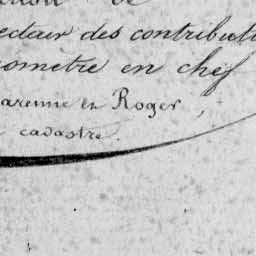 de
ecteur des contributi
ometre en chef
arenne en Roger,
cadastre.